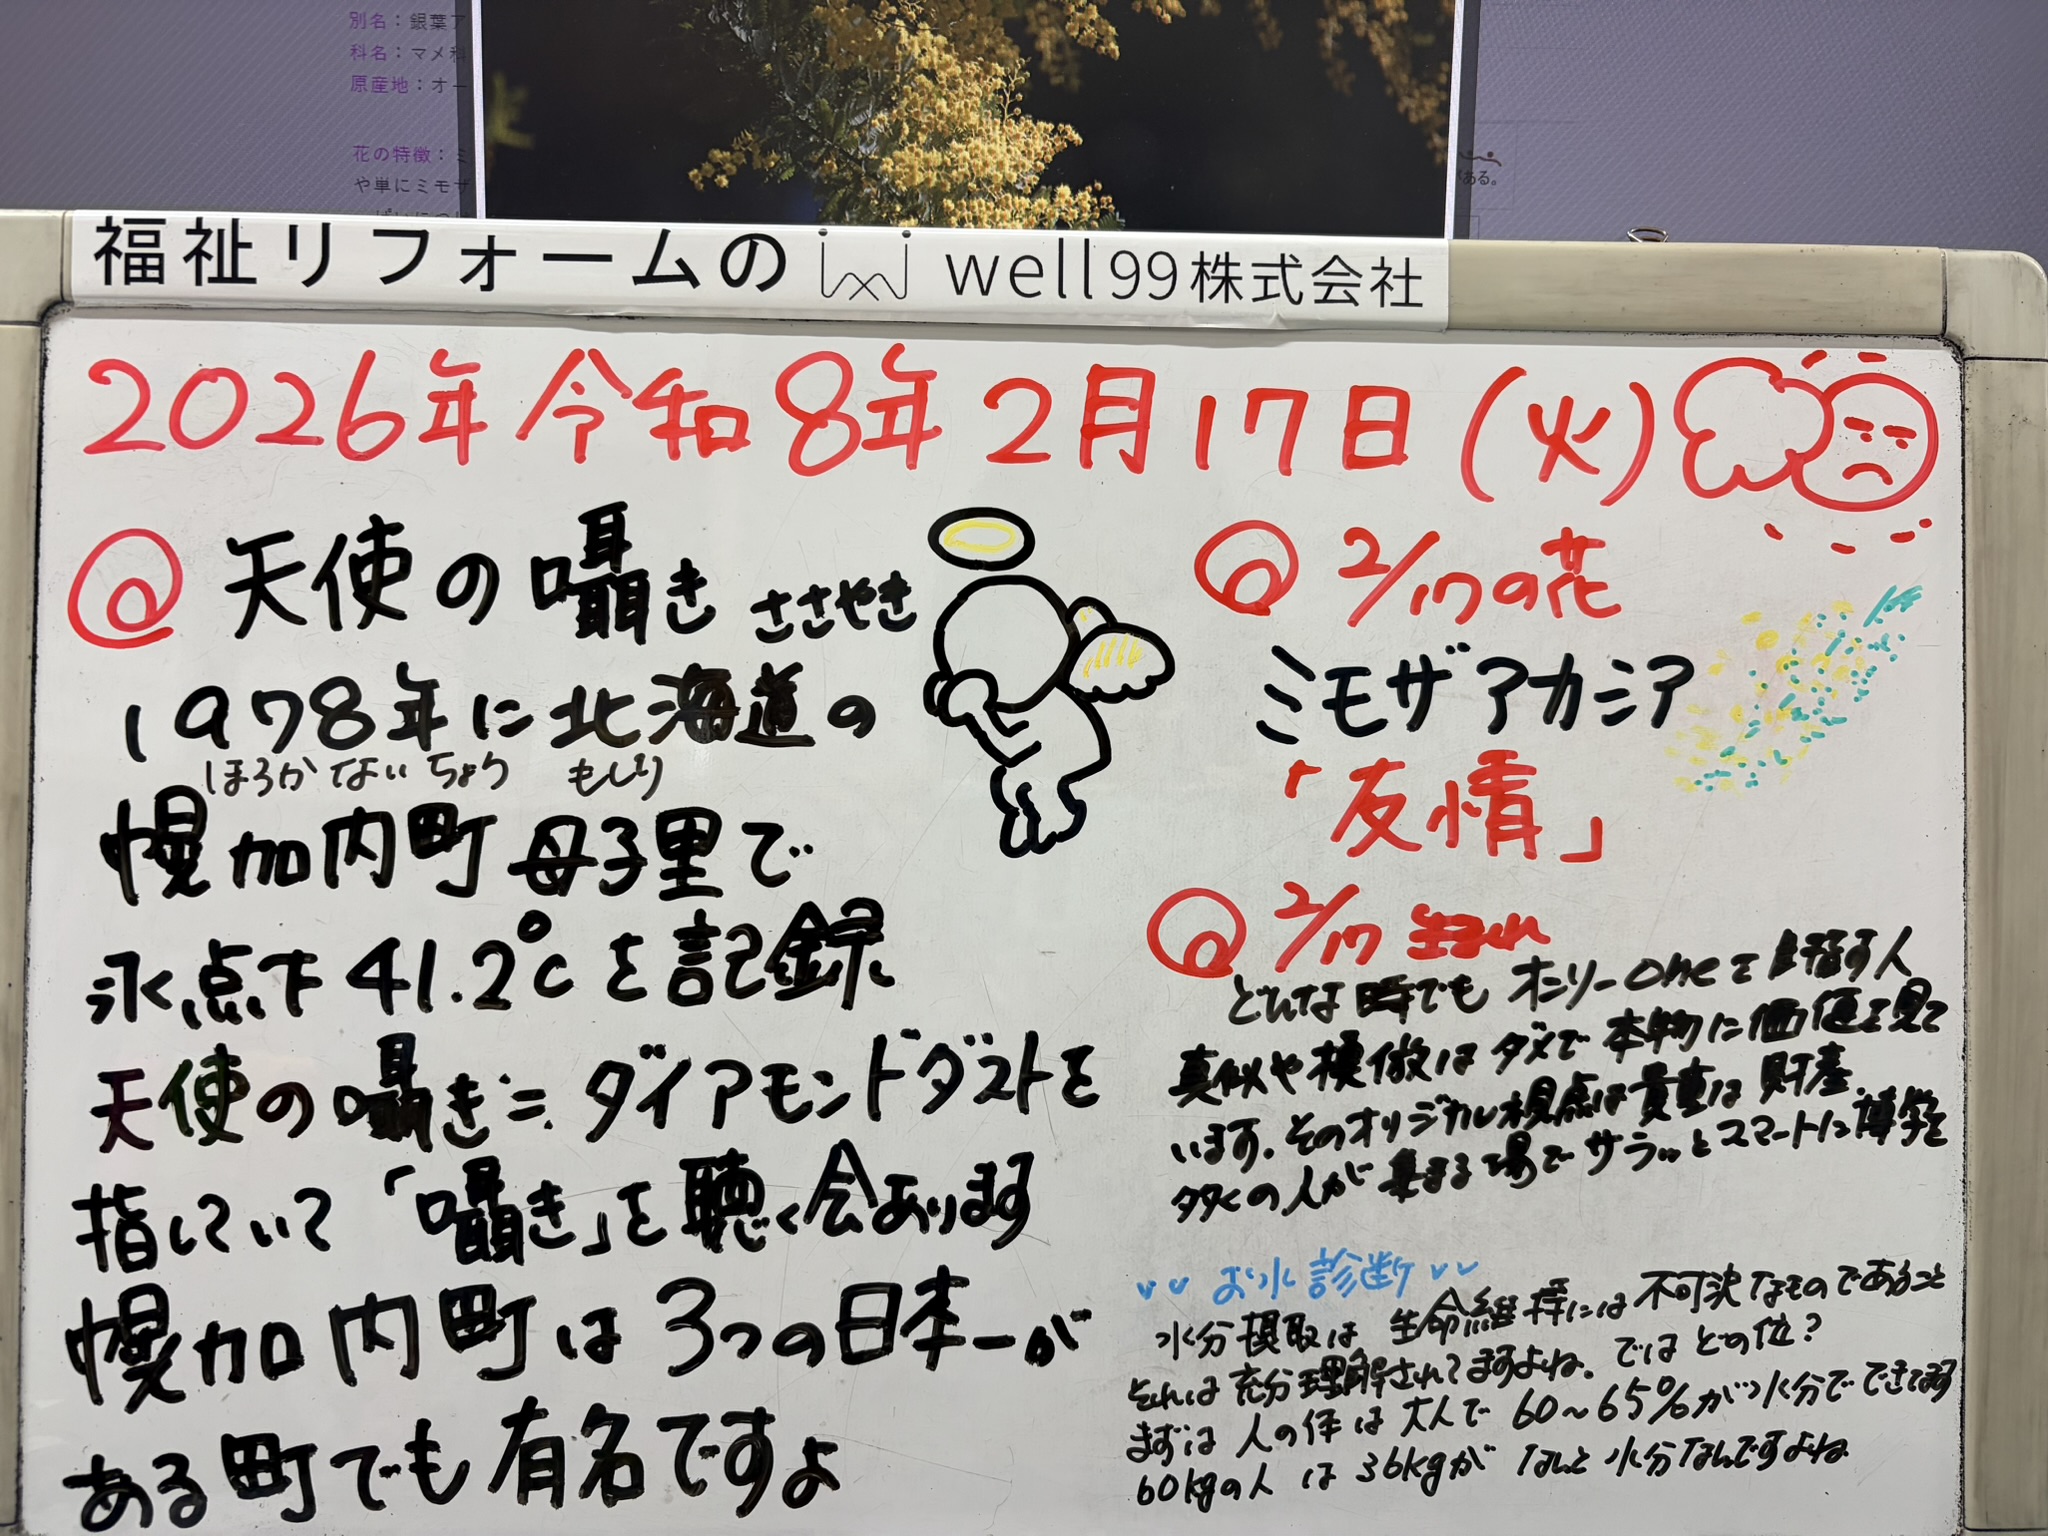 別名：銀葉ア
科名：マメ科
原産地：オー
花の特徴：ミ
や単にミモザ
ある。
福祉リフォームの well99株式会社
2026年令和8年2月17日(火)
天使の囁き ささやき
1978年に北海道の
ほろかないちょう もしり
幌加内町母子里で
氷点下41.2℃を記録
天使の囁き≒ダイアモンドダストを
指していて「囁き」を聴く会あります
幌加内町は3つの日本一が
ある町でも有名ですよ
2/17の花
ミモザアカシア
「友情」
2/17生まれ
どんな時でもオンリーoneを目指す人
真似や模倣はダメで本物に価値を見て
います。そのオリジナル視点は貴重は財産
多くの人が集まる場でサラッとスマートに博学を
お水診断
水分摂取は生命維持には不可決なものであること
それは充分理解されてますよね。ではどの位?
まずは人の体は大人で60〜65%が水分でできてます
60kgの人は36kgがなんと水分なんですよね